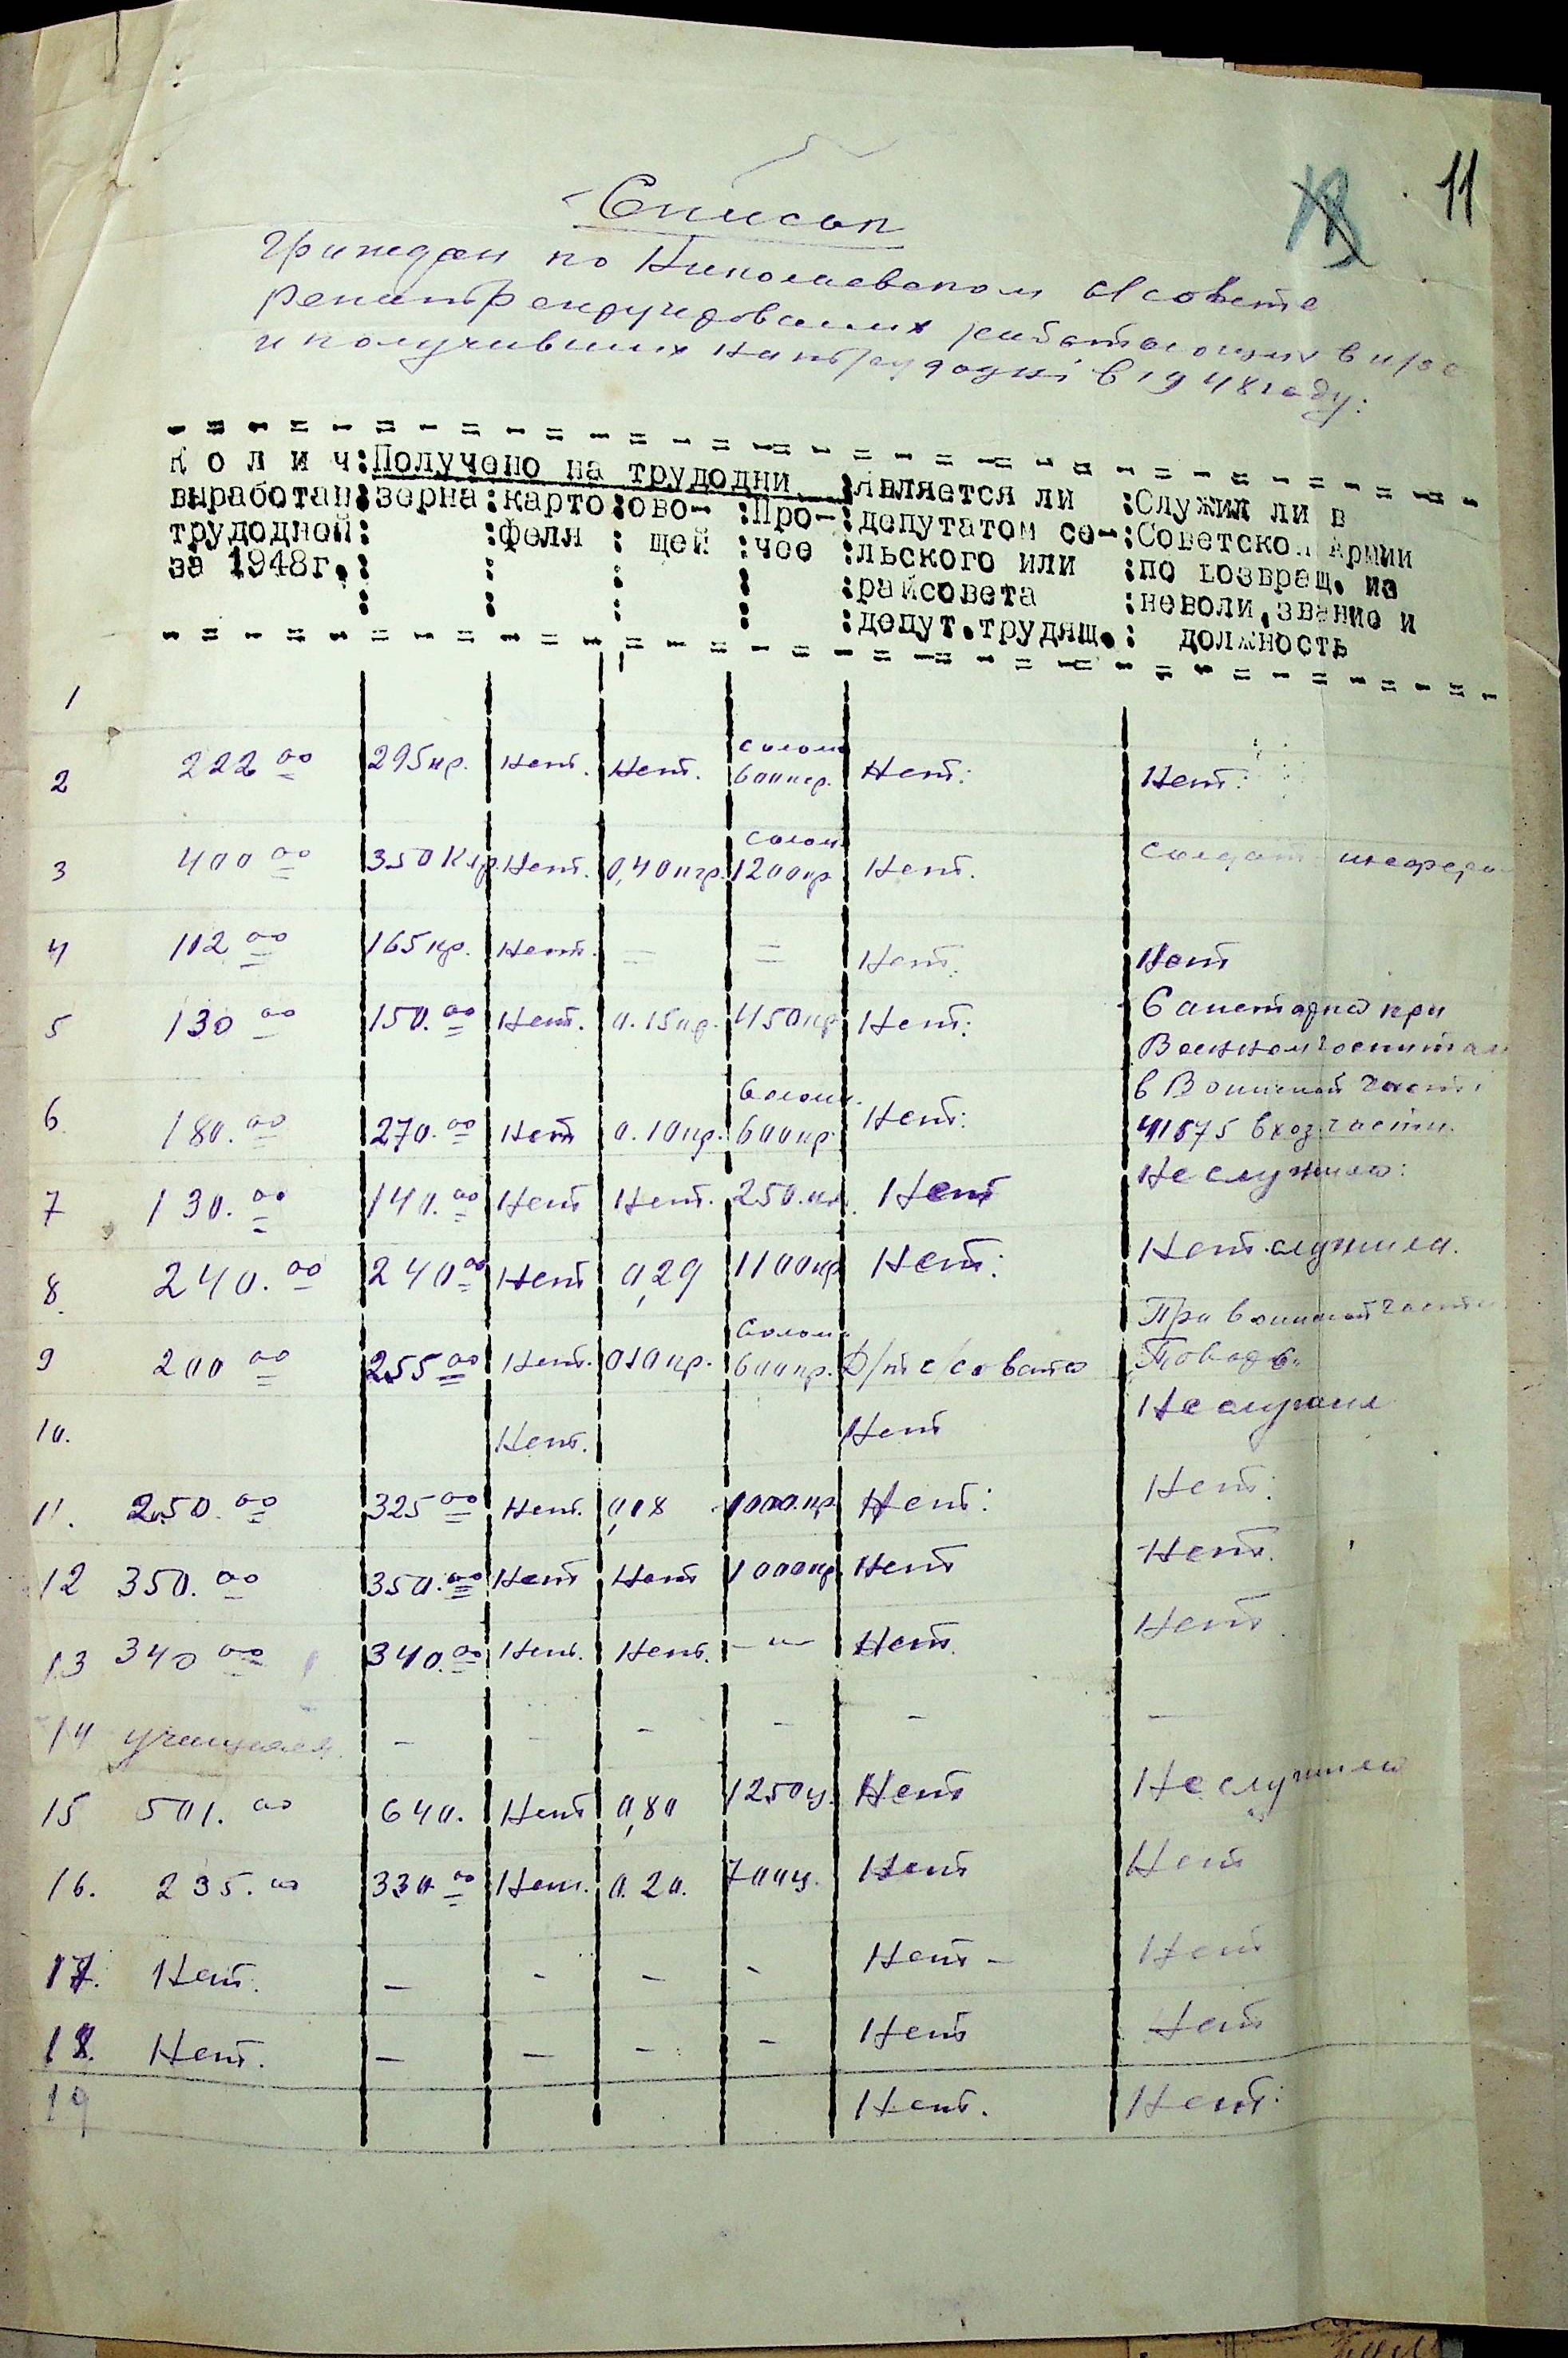 11
Список
Граждан по Николаевском с/совете
работающих в
и получивших на трудодни в 1948 году:
К о л и ч :Получено на трудодни :Является ли :Служил ли в
выработан:зерна:карто:ово- :Про-:депутатом се-:Советской Армии
трудодней: :феля : щей :чее :льского или :по возвращ. из
за 1948г.: : : : :райсовета :неволи, звание и
: : : : :депут.трудящ.: должность
1
2 222 00 295 кр. Нет. Нет. солом 600 кр. Нет: Нет:
3 400 00 350 Клр. Нет. 0,40 кгр. солом 1200 кр Нет. солдат
4 112 00 165 кр. Нет. = = Нет. Нет
5 130 00 150.00 Нет. 0.15 кр. 450 кр Нет: Санитарка при
Военном госпитал
в Воинской части
6 180.00 270.00 Нет 0.10 кр. Солом. 600 кр Нет: 41675 в хоз части.
7 130.00 140.00 Нет Нет. 250. кл. Нет Не служила:
8. 240.00 240 00 Нет 0,29 1100 кр Нет: Нет. служила.
При воинской части
9 200 00 255 00 Нет. 010 кр. Солом. 600 кр. Д/т с/совета Повар
10. Нет. Нет Не служил
11. 250.00 325 00 Нет. 0,18 1000. кр. Нет: Нет:
12 350.00 350.00 Нет Нет 1000 кр Нет Нет.
13 340 00 340.00 Нет. Нет. —"— Нет. Нет.
14 – – – – – –
15 501.00 640. Нет 0,80 1250 ц. Нет Не служила
16. 235.00 330.00 Нет. 0.20. 700 ц. Нет Нет
17. Нет. – – – – Нет – Нет
18. Нет. – – – – Нет Нет
19 Нет. Нет: